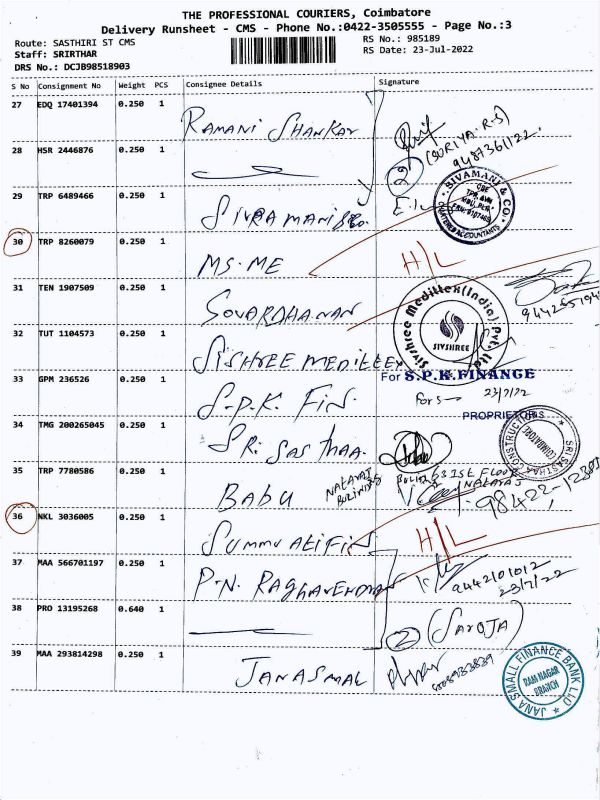 THE PROFESSIONAL COURIERS, Coimbatore
Delivery Runsheet - CMS - Phone No.:0422-3505555 - Page No.:3
Route: SASTHIRI ST CMS
RS No.: 985189
Staff: SRIRTHAR
RS Date: 23-Jul-2022
DRS No.: DCJB98518903
S No Consignment No Weight PCS Consignee Details Signature
27 EDQ 17401394 0.250 1 RAMANI SHANKAR
(SURIYA.R.S)
9487361122
28 HSR 2446876 0.250 1
29 TRP 6489466 0.250 1 SIVAMANI & Co.
SIVAMANI & CO
CHARTERED ACCOUNTANTS
30 TRP 8260079 0.250 1 MS. ME H/L
31 TEN 1907509 0.250 1 SOVARDHANAN
32 TUT 1104573 0.250 1 SISHREE MEDITTEX
Sivshree Medittex(India) Pvt. Ltd
SIVSHREE
33 GPM 236526 0.250 1 S.P.K. FIN.
For S.P.K.FINANCE
23/7/22
PROPRIETORS
34 TMG 200265045 0.250 1 SRI SASTHAA.
SRI SASTHAA CONSTRUCTIONS
COIMBATORE
35 TRP 7780586 0.250 1 BABU
NATARAJ
1ST FLOOR
36 NKL 3036005 0.250 1 H/L
37 MAA 566701197 0.250 1 P.N. RAGHAVENDRAN
9442101012
23/7/22
38 PRO 13195268 0.640 1 2 (SAROJA)
39 MAA 293814298 0.250 1 JANASMAL
JANA SMALL FINANCE BANK LTD
RAM NAGAR
BRANCH